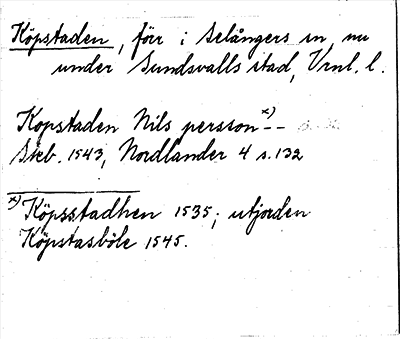 Köpstaden, förr i Selångers sn, nu
under Sundsvalls stad, Vrnl. l.
Kopstaden Nils persson x) --
Skb. 1543, Nordlander 4 s. 132
x) Köpsstadhen 1535; utjorden
Köpstasböle 1545.